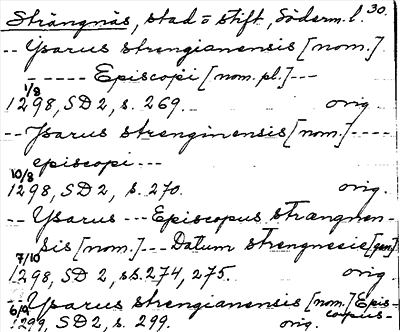 30.
Strängnäs, stad o stift, Söderm. l.
-- Ysarus strengianensis [nom.]
----- Episcopi [nom. pl.] ---
1/8
1298, SD 2, s. 269. orig.
-- Ysarus strenginensis [nom.] -----
episcopi ---
10/8
1298, SD 2, s. 270. orig.
-- Ysarus --- Episcopus strængnen-
sis [nom.] --- Datum strengnesie [gen]
7/10
1298, SD 2, ss. 274, 275. orig.
-- Ysarus strengianensis [nom.] Epis-
copus-
1299, SD 2, s. 299. orig.